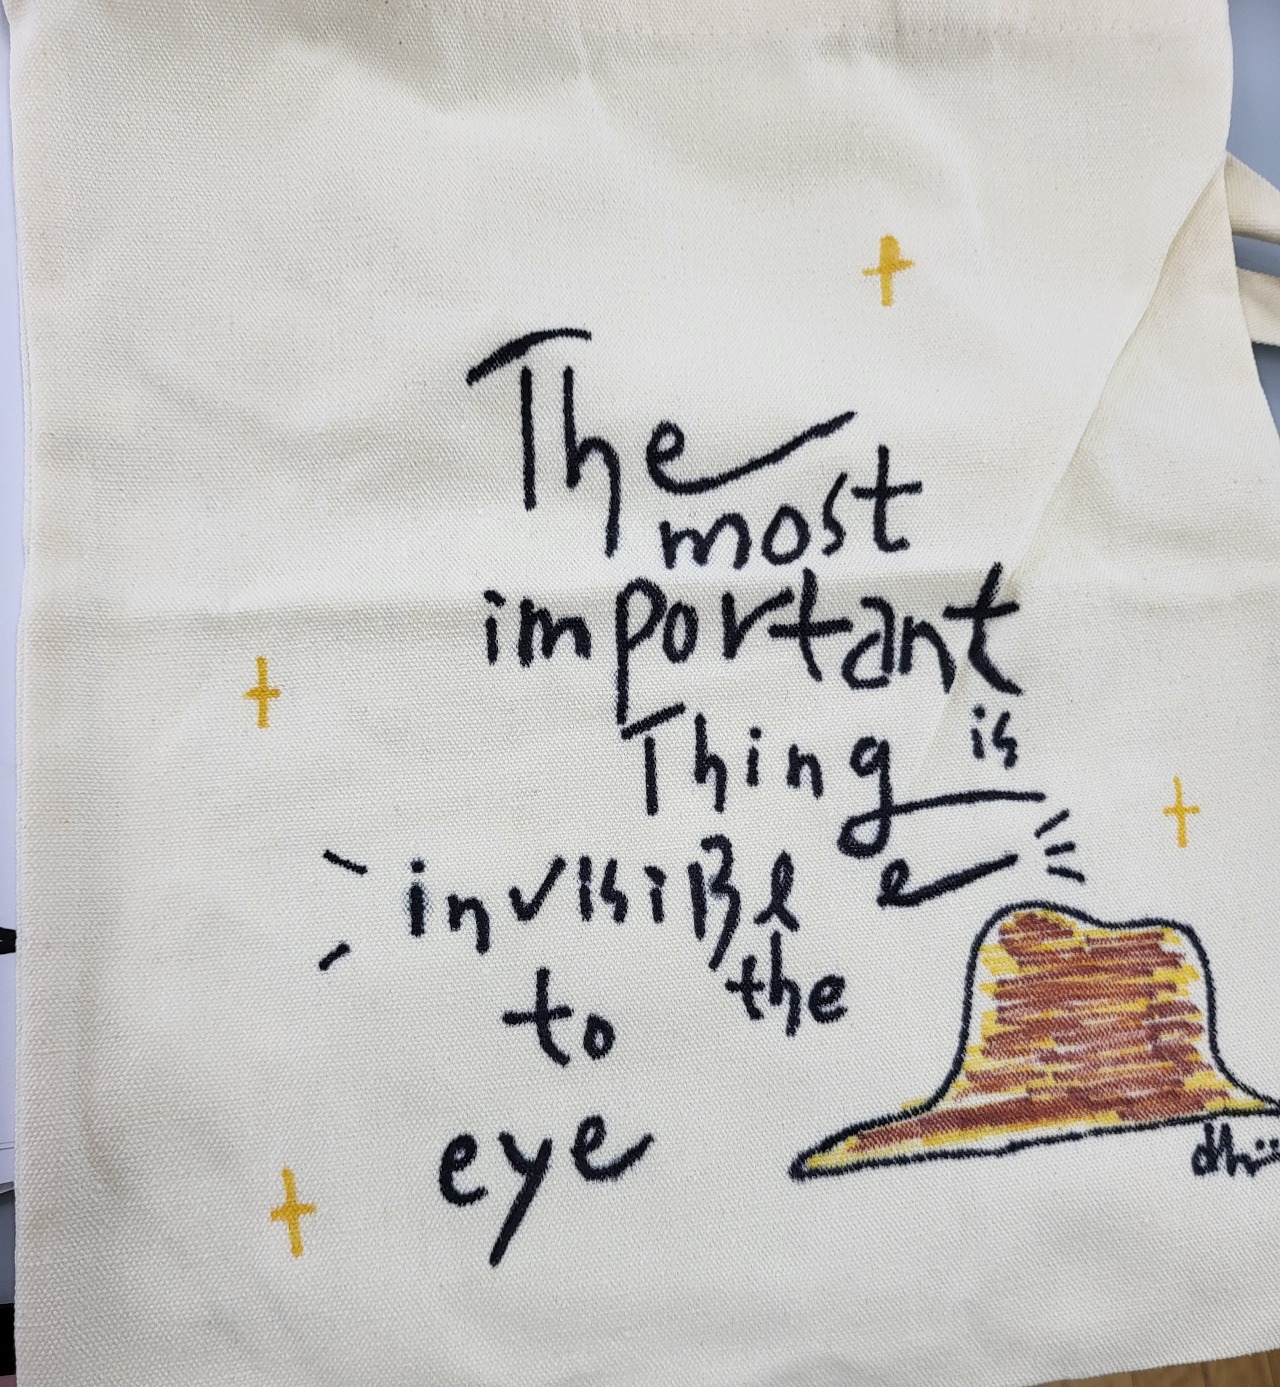 The
most
important
Thing is
invisiBle
to the
eye